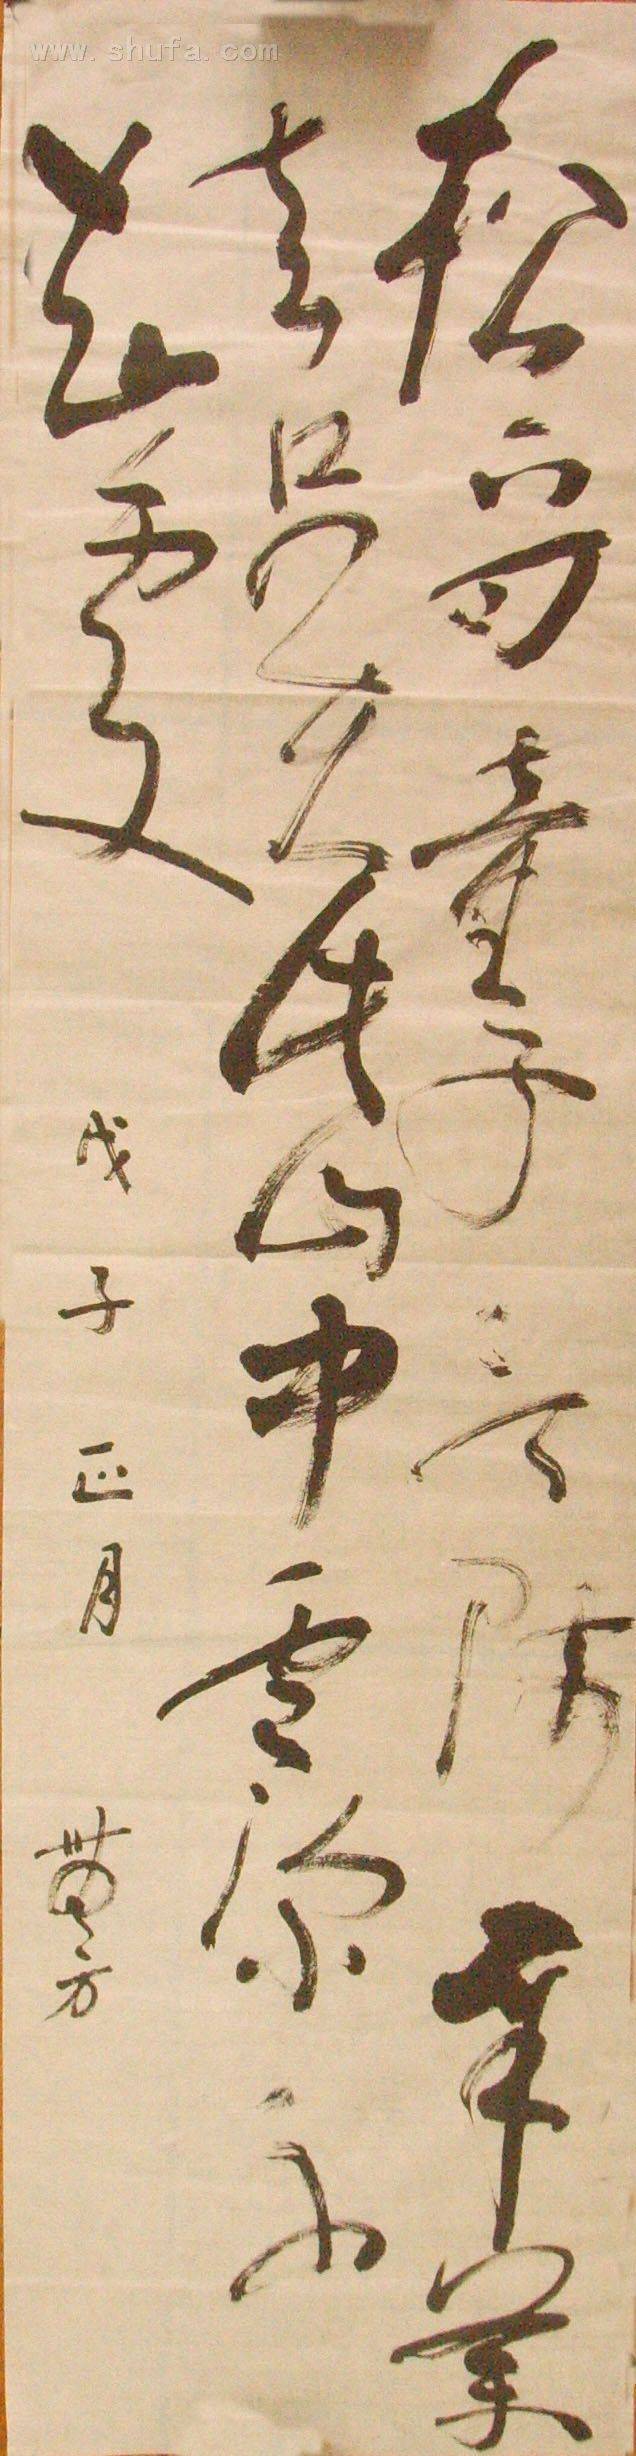 松下问童子言师采药
去只在此山中云深不
知处
戊子正月
黄方
www.shufa.com